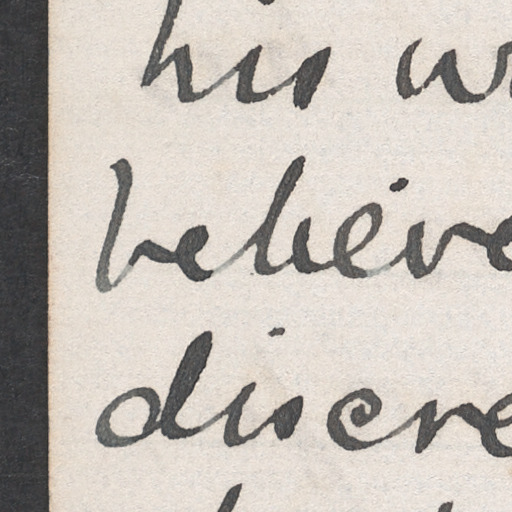 his w
believe
discre